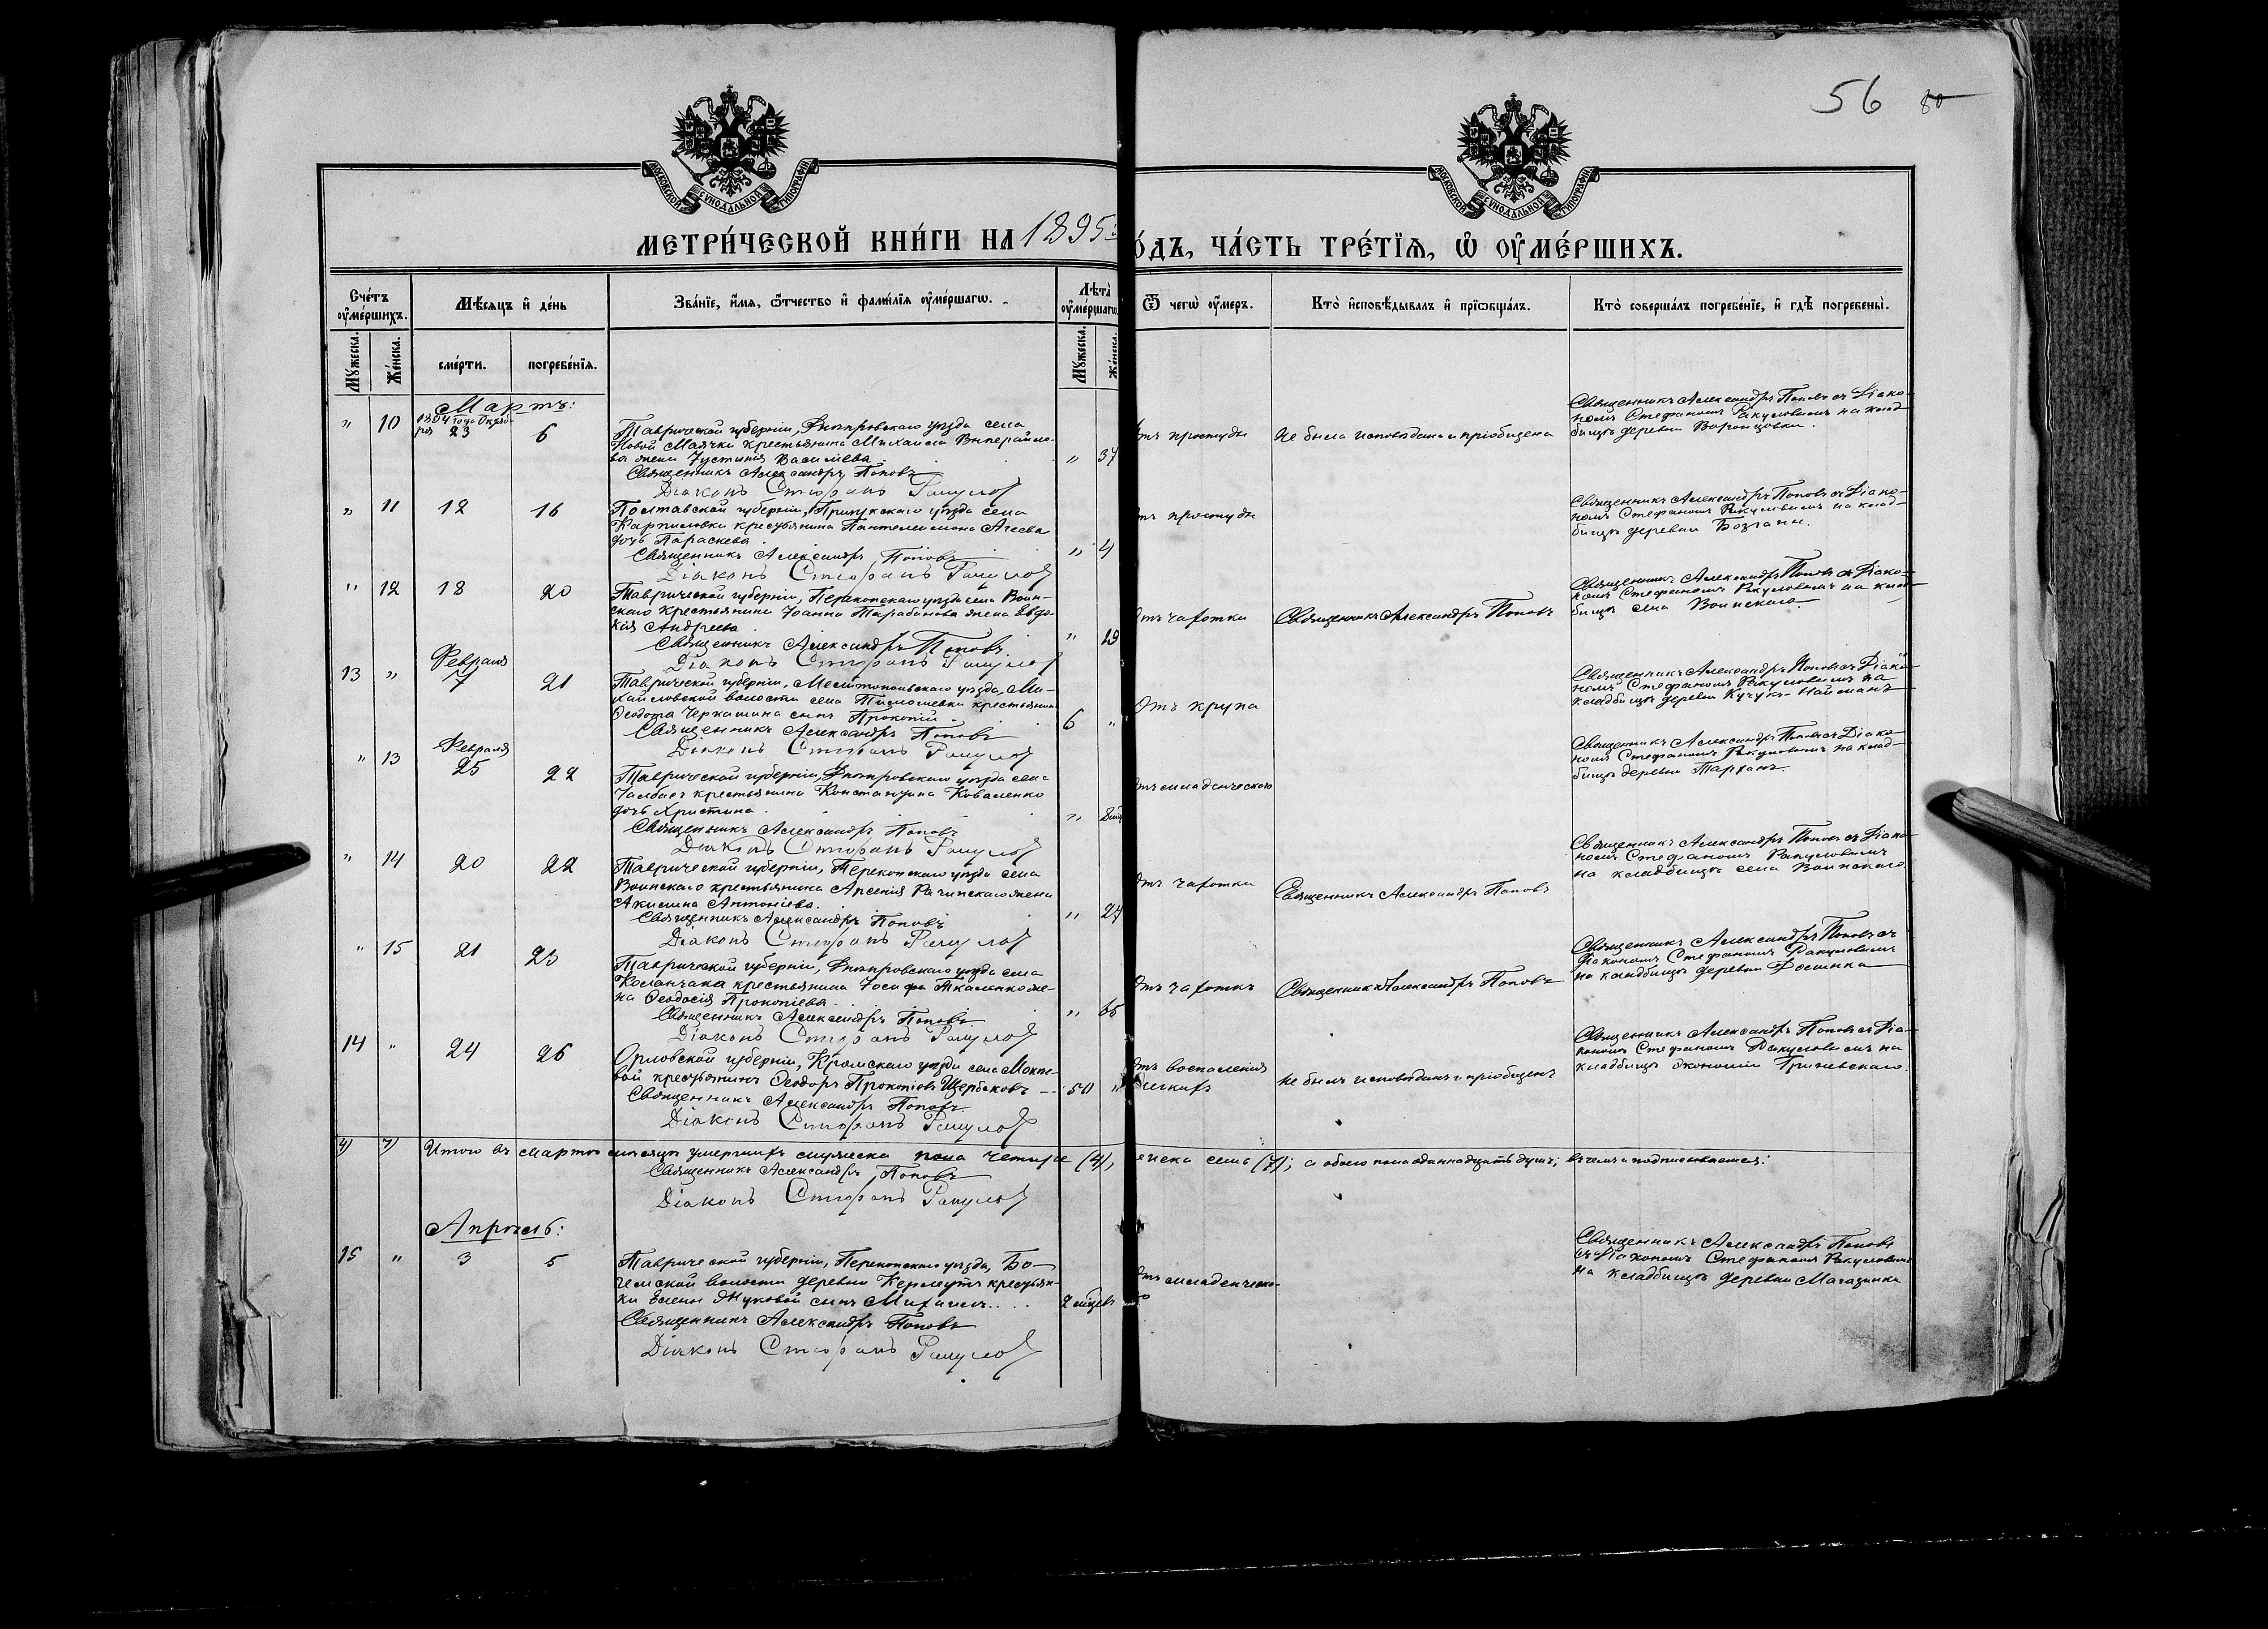 56 80
МОСКОВСКОЙ СѴНОДАЛЬНОЙ ТИПОГРАФІИ
МОСКОВСКОЙ СѴНОДАЛЬНОЙ ТИПОГРАФІИ
МЕТРИ́ЧЕСКОЙ КНИ́ГИ НА 1895й
О́ДЪ, ЧА́СТЬ ТРЕ́ТЇѦ, Ѡ҆ ОУ҆МЕ́РШИХЪ.
Сче́тъ оу҆ме́ршихъ.
Мѣ́сѧцъ и҆ де́нь
Зва́нїе, и҆́мѧ, ѻ҆́тчество и҆ фами́лїѧ оу҆ме́ршагѡ.
Лѣ́та оу҆ме́ршагѡ
Ѿ чегѡ̀ оу҆́меръ.
Кто̀ и҆сповѣ́дывалъ и҆ прїѡбща́лъ.
Кто̀ соверша́лъ погребе́нїе, и҆ гдѣ̀ погребены̀.
Мꙋ́жеска.
Же́нска.
сме́рти.
погребе́нїѧ.
Мꙋ́жеска.
Же́нска.
Мартъ:
" 10 1894 года Октяб-
ря 23 6
Таврической губерніи, Днѣпровскаго уѣзда села
Новой Маячки крестьянина Михаила
ва жена Іустинія Васильева
" 37
Священникъ Александръ Поповъ
Діаконъ Стефанъ
отъ простуды
не была исповѣдана и пріобщена
Священникъ Александръ Поповъ съ Діако-
номъ Стефаномъ на клад-
бищѣ деревни Воронцовки.
" 11 12 16
Полтавской губерніи, Прилукскаго уѣзда села
Карпиловки крестьянина Пантелеимона Агеева
дочь Параскева
" 4
Священникъ Александръ Поповъ
Діаконъ Стефанъ
отъ простуды
Священникъ Александръ Поповъ съ Діако-
номъ Стефаномъ на клад-
бищѣ деревни
" 12 18 20
Таврической губерніи, Перекопскаго уѣзда села Воин-
скаго крестьянина Іоанна Тарабанова жена Евдо-
кія Андреева
" 19
Священникъ Александръ Поповъ
Діаконъ Стефанъ
отъ чахотки
Священникъ Александръ Поповъ
Священникъ Александръ Поповъ съ Діако-
номъ Стефаномъ на клад-
бищѣ села Воинскаго.
13 " Февраля
7 21
Таврической губерніи, Мелитопольскаго уѣзда, Ми-
хайловской волости села Тимошевки крестьянина
Ѳеодота Черкашина сынъ Прокопій
6 "
Священникъ Александръ Поповъ
Діаконъ Стефанъ
Отъ крупа
Священникъ Александръ Поповъ съ Діако-
номъ Стефаномъ на
кладбищѣ деревни Кучукъ-Найманъ
" 13 Февраля
25 22
Таврической губерніи, Днѣпровскаго уѣзда села
Чалбасъ крестьянина Константина Коваленко
дочь Христина
"
Священникъ Александръ Поповъ
Діаконъ Стефанъ
отъ младенческаго
Священникъ Александръ Поповъ съ Діако-
номъ Стефаномъ на клад-
бищѣ деревни Тарханъ.
" 14 20 22
Таврической губерніи, Перекопскаго уѣзда села
Воинскаго крестьянина Арсенія жена
Акилина Антоніева.
" 27
Священникъ Александръ Поповъ
Діаконъ Стефанъ
отъ чахотки
Священникъ Александръ Поповъ
Священникъ Александръ Поповъ съ Діако-
номъ Стефаномъ
на кладбищѣ села Воинскаго
" 15 21 23
Таврической губерніи, Днѣпровскаго уѣзда села
Коланчака крестьянина Іосифа Ткаленко же-
на Ѳеодосія Прокопіева.
" 65
Священникъ Александръ Поповъ
Діаконъ Стефанъ
отъ чахотки
Священникъ Александръ Поповъ
Священникъ Александръ Поповъ съ
Діакономъ Стефаномъ
на кладбищѣ деревни
14 " 24 26
Орловской губерніи, Кромскаго уѣзда села
вой крестьянинъ Ѳеодоръ Прокопіевъ Щербаковъ
50 "
Священникъ Александръ Поповъ
Діаконъ Стефанъ
отъ воспаленія
легкихъ
не былъ исповѣданъ и пріобщенъ
Священникъ Александръ Поповъ съ Діа-
кономъ Стефаномъ на
кладбищѣ экономіи
4) 7) Итого въ мартѣ мѣсяцѣ умершихъ мужеска пола четыре (4), женска семь (7); а обоего пола одиннадцать душъ; въ чемъ и подписываемся:
Священникъ Александръ Поповъ
Діаконъ Стефанъ
Апрѣль:
15 " 3 5
Таврической губерніи, Перекопскаго уѣзда, Бо-
гемской волости деревни Керлеутъ крестьян-
ки Елены Жуковой сынъ Михаилъ....
2 мѣсяц
Священникъ Александръ Поповъ
Діаконъ Стефанъ
отъ младенческа-
го
Священникъ Александръ Поповъ
съ Діакономъ Стефаномъ
на кладбищѣ деревни Магазинка